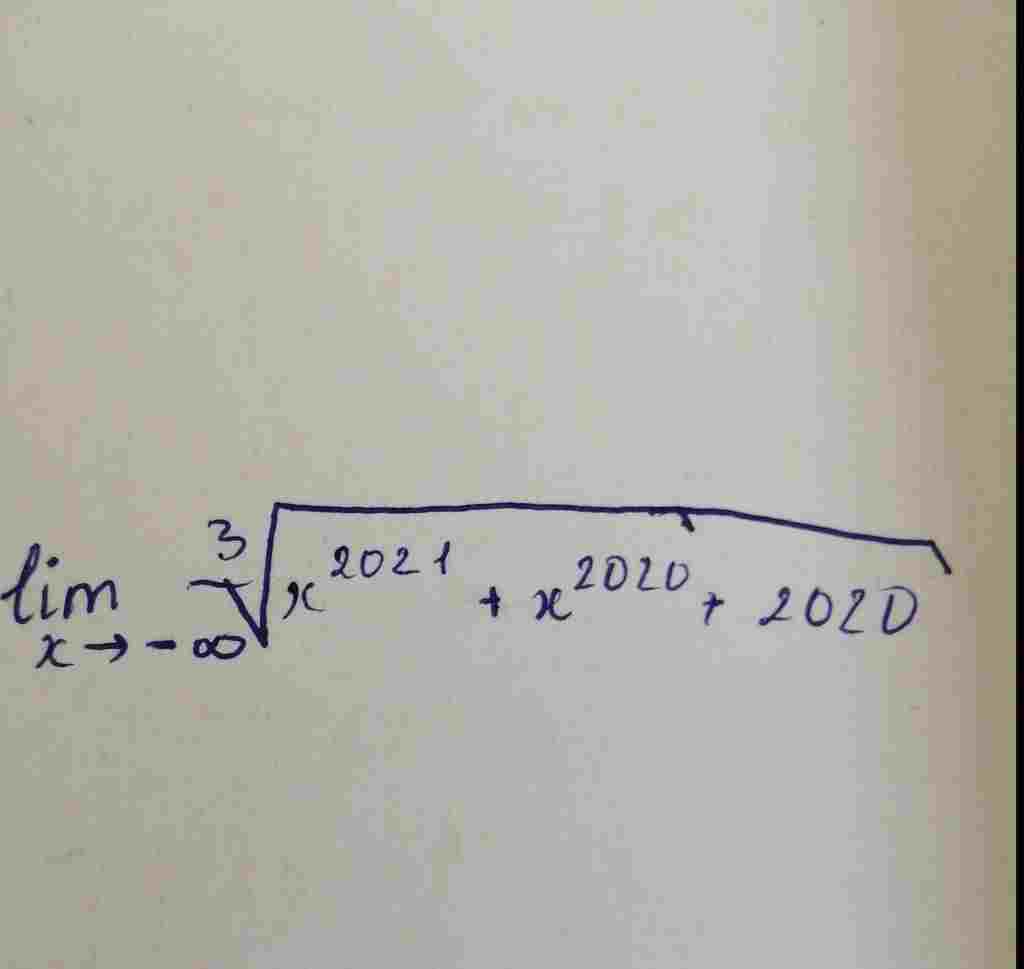 lim ∛(x²⁰²¹ + x²⁰²⁰ + 2020)
x → -∞